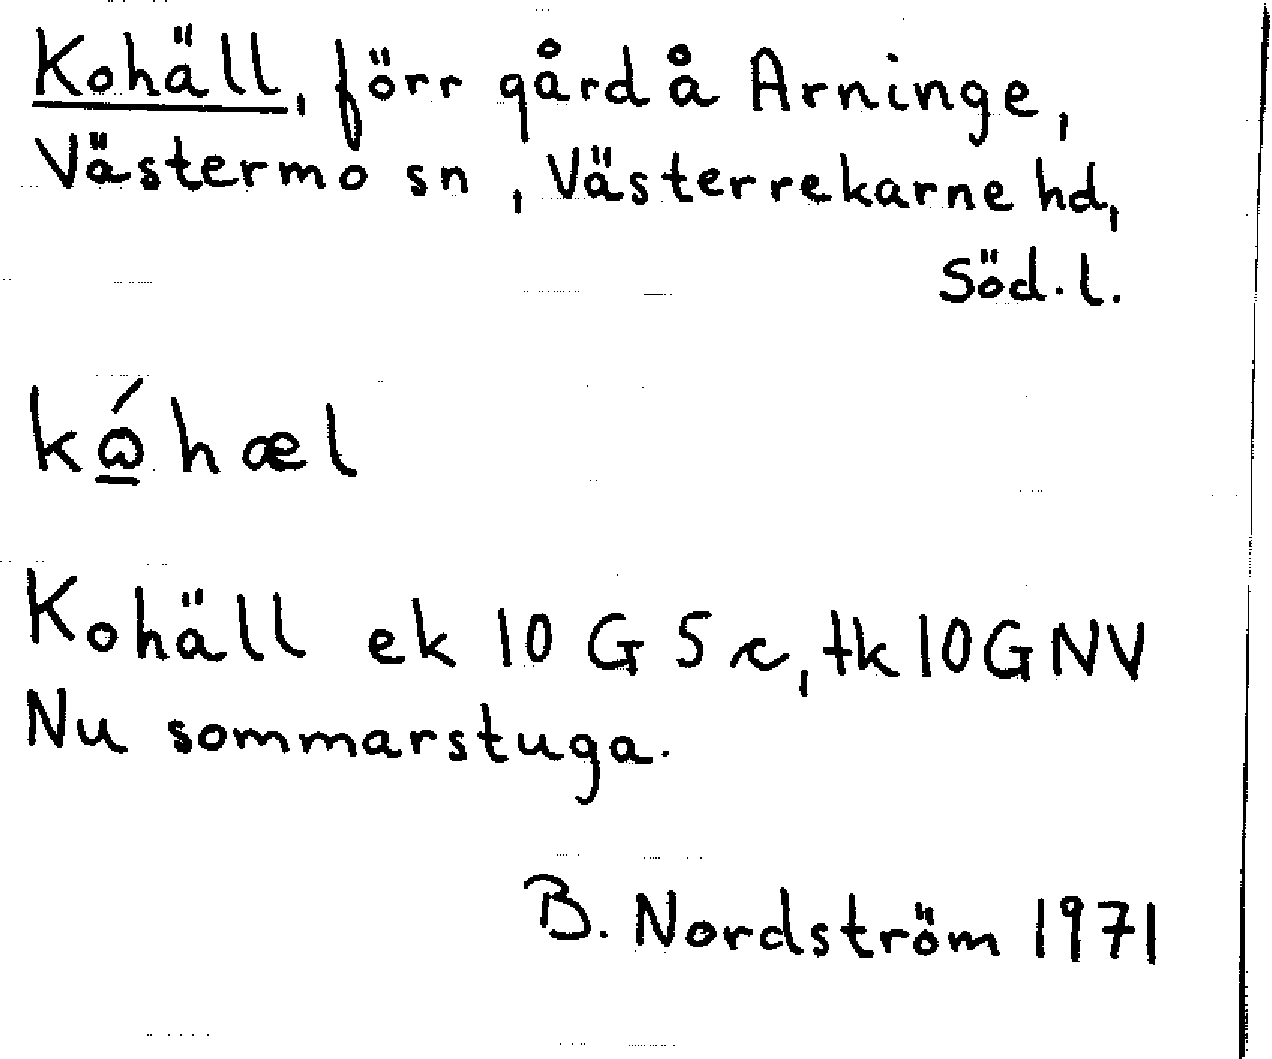 Kohäll, förr gård å Arninge,
Västermo sn, Västerrekarne hd,
Söd.l.
kώ̲hæl
Kohäll ek 10 G 5 c, tk 10 G NV
Nu sommarstuga.
B. Nordström 1971